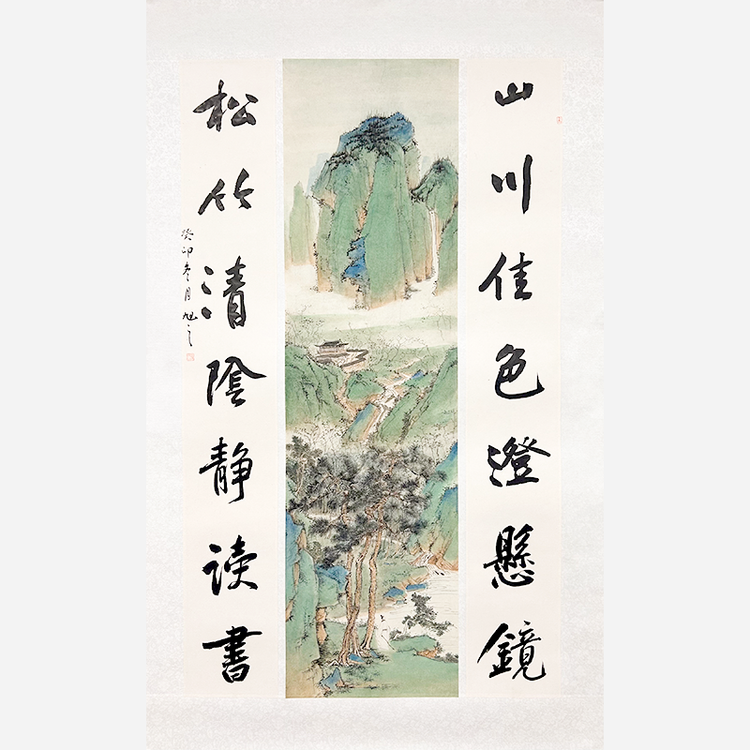 山川佳色澄懸鏡
松竹清陰静读書
癸卯冬月旭之